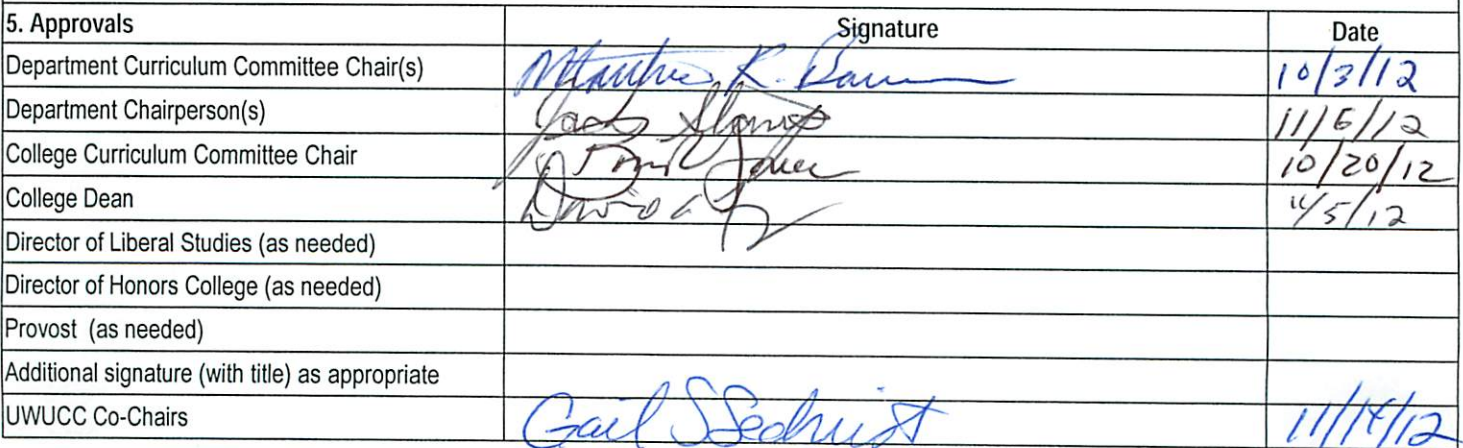 5. Approvals Signature Date
Department Curriculum Committee Chair(s) K. 10/3/12
Department Chairperson(s) 11/6/12
College Curriculum Committee Chair 10/20/12
College Dean David 11/5/12
Director of Liberal Studies (as needed)
Director of Honors College (as needed)
Provost (as needed)
Additional signature (with title) as appropriate
UWUCC Co-Chairs Gail S Sechrist 11/14/12